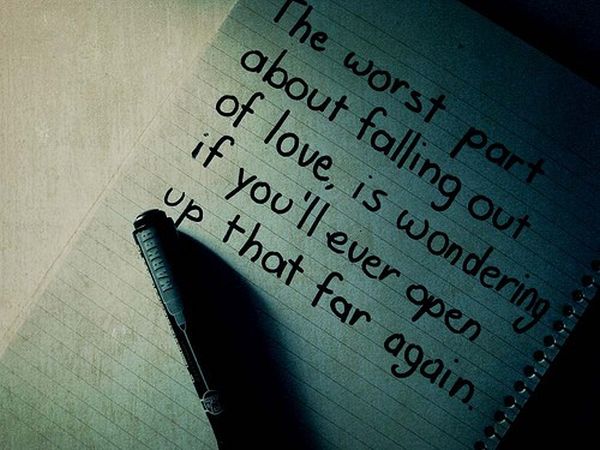 The worst part
about falling out
of love, is wondering
if you'll ever open
up that far again.
MARKER